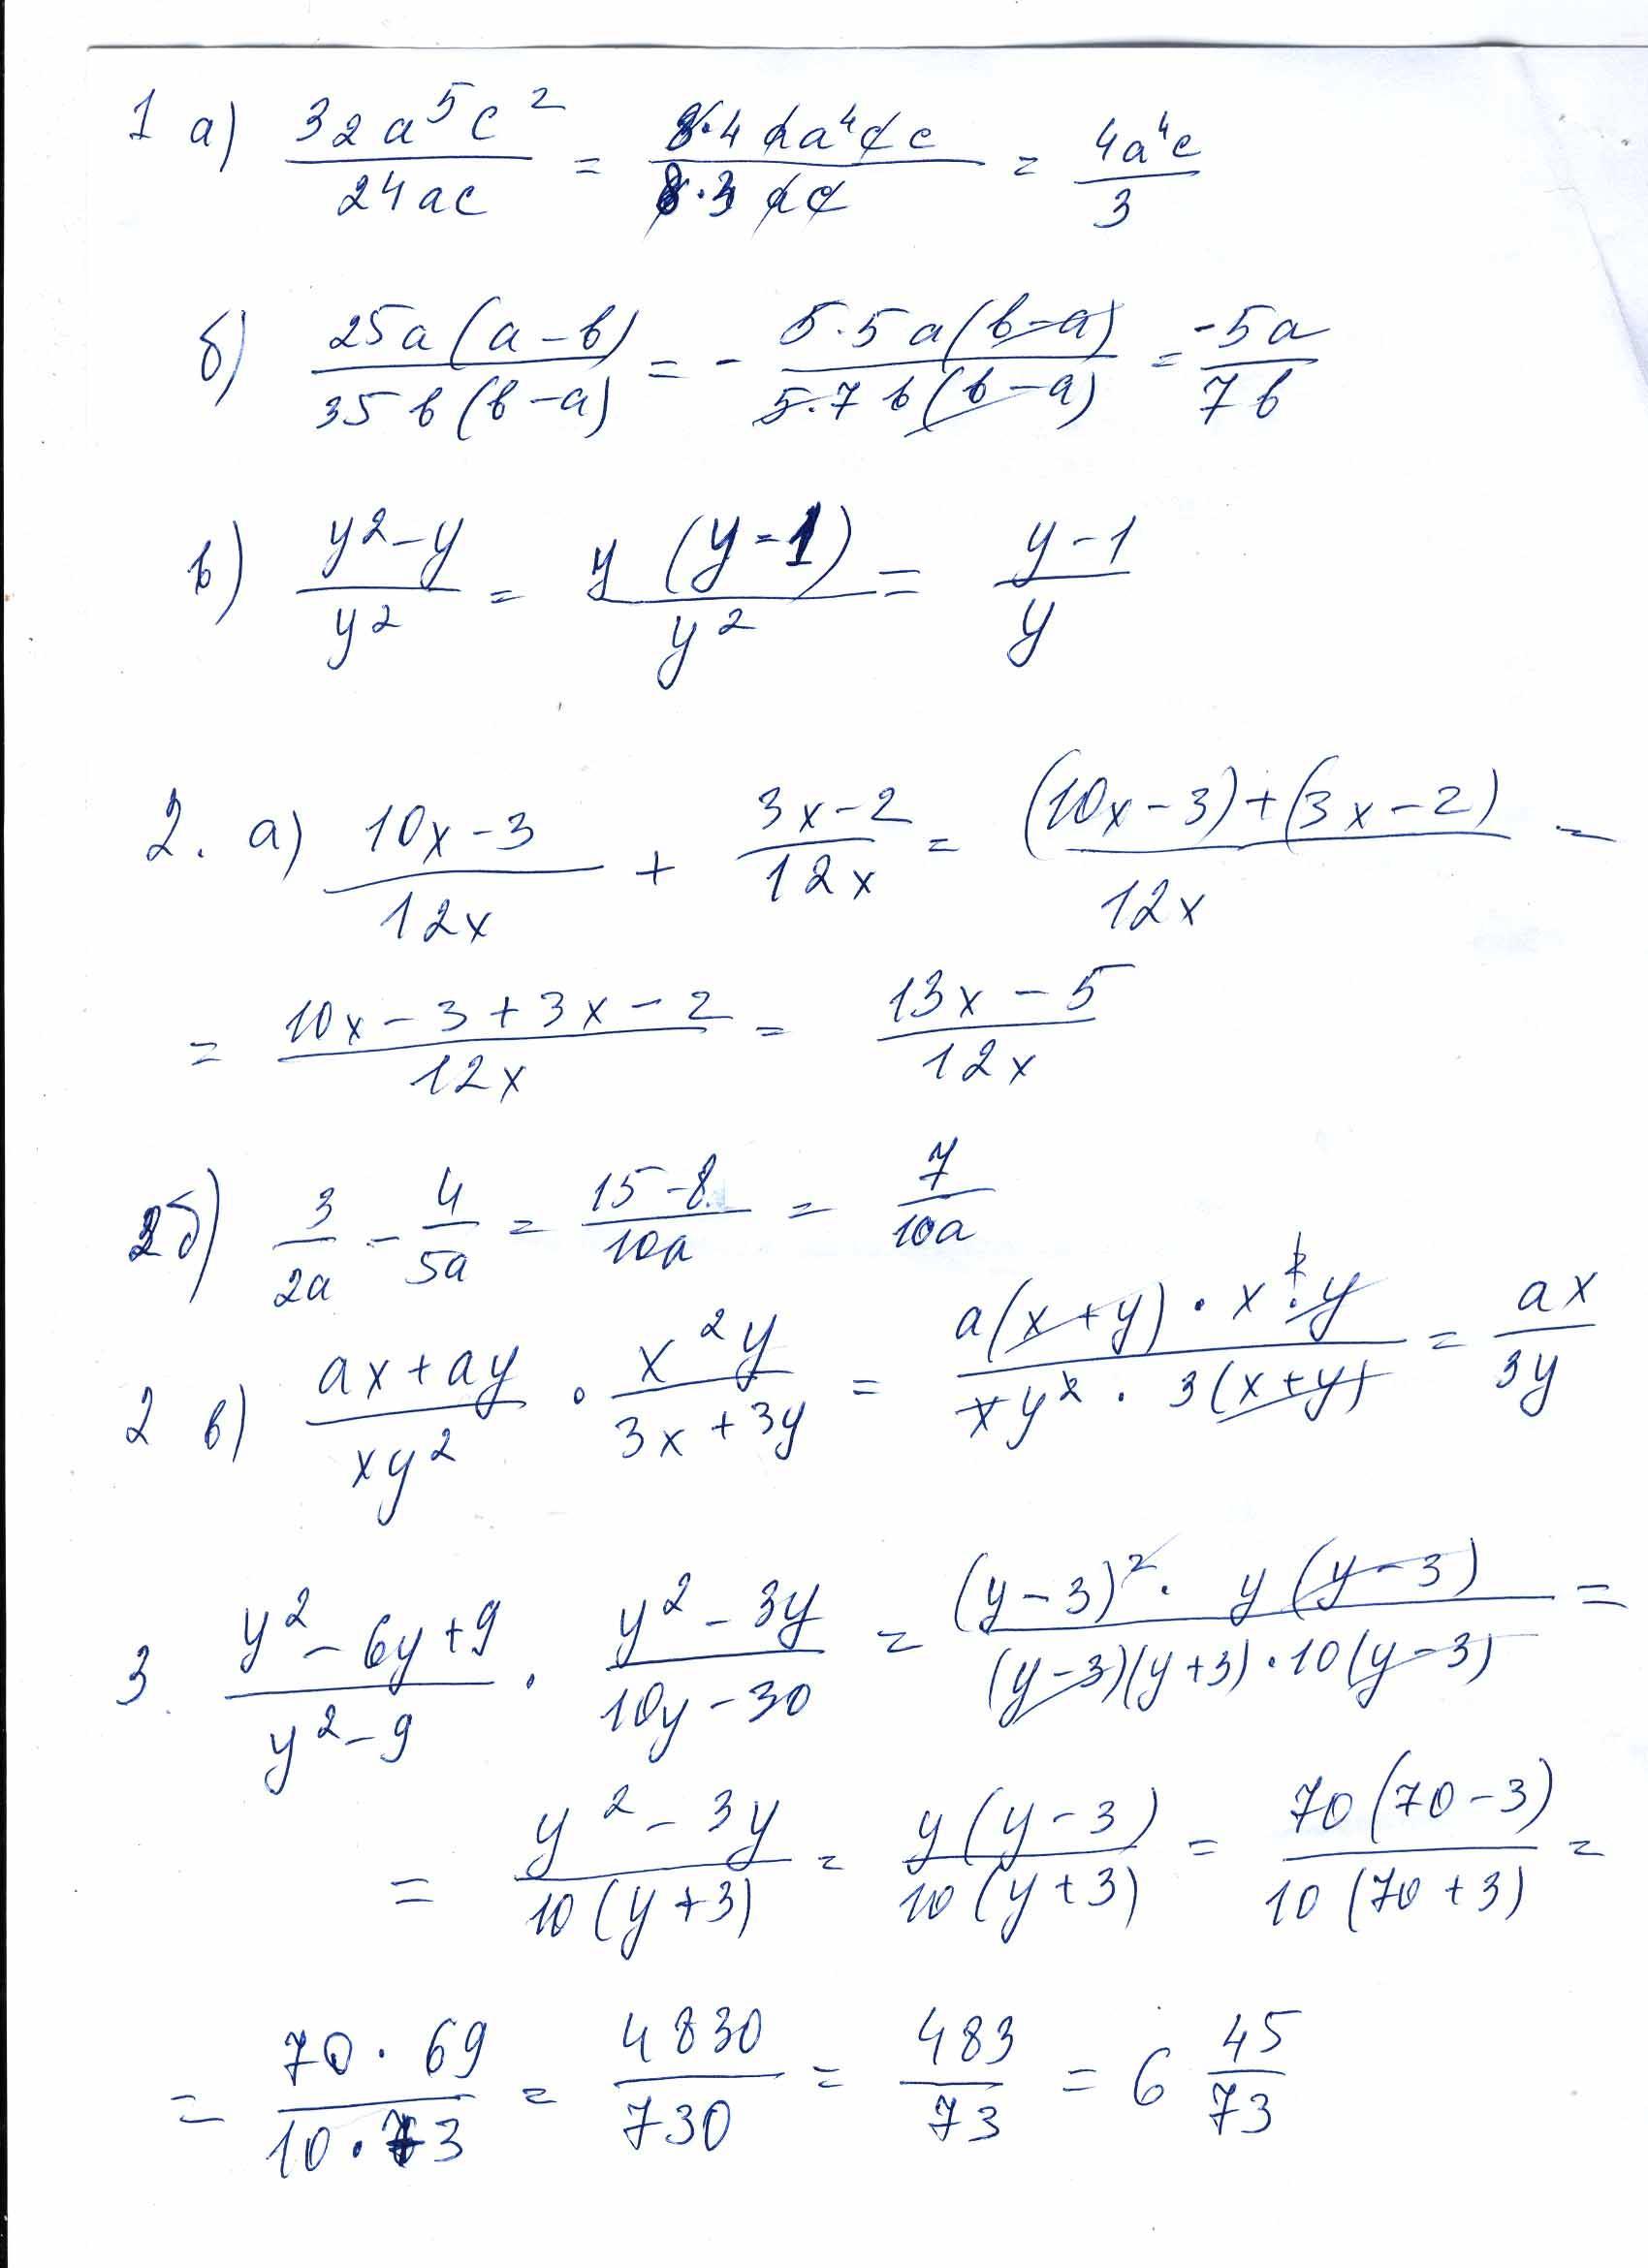 1 а) 32a⁵c² / 24ac = 8·4 aa⁴cc / 8·3 ac = 4a⁴c / 3
б) 25a(a-b) / 35b(b-a) = - 5·5a(b-a) / 5·7b(b-a) = -5a / 7b
в) y²-y / y² = y (y-1) / y² = y-1 / y
2. а) 10x-3 / 12x + 3x-2 / 12x = (10x-3)+(3x-2) / 12x =
= 10x-3+3x-2 / 12x = 13x-5 / 12x
2б) 3 / 2a - 4 / 5a = 15-8 / 10a = 7 / 10a
2 в) ax+ay / xy² · x²y / 3x+3y = a(x+y)·x²·y / xy²·3(x+y) = ax / 3y
3. y²-6y+9 / y²-9 · y²-3y / 10y-30 = (y-3)²·y(y-3) / (y-3)(y+3)·10(y-3) =
= y²-3y / 10(y+3) = y(y-3) / 10(y+3) = 70(70-3) / 10(70+3) =
= 70·69 / 10·73 = 4830 / 730 = 483 / 73 = 6 45/73